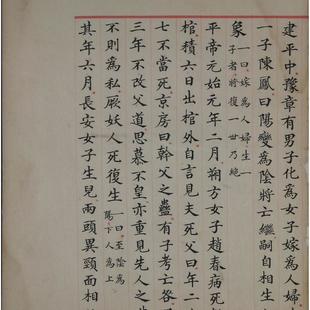 建平中豫章有男子化爲女子嫁爲人婦
一子陳鳳曰陽變爲陰將亡繼嗣自相生
象一曰嫁爲人婦生一子者將復一世乃絶
平帝元始元年二月朔方女子趙春病死
棺積六日出棺外自言見夫死父曰年二
七不當死京房曰幹父之蠱有子考亡咎
三年不改父道思慕不皇亦重見先人之
不則爲私厥妖人死復生一曰至陰爲陽下人爲上
其年六月長安女子生兒兩頭異頸面相